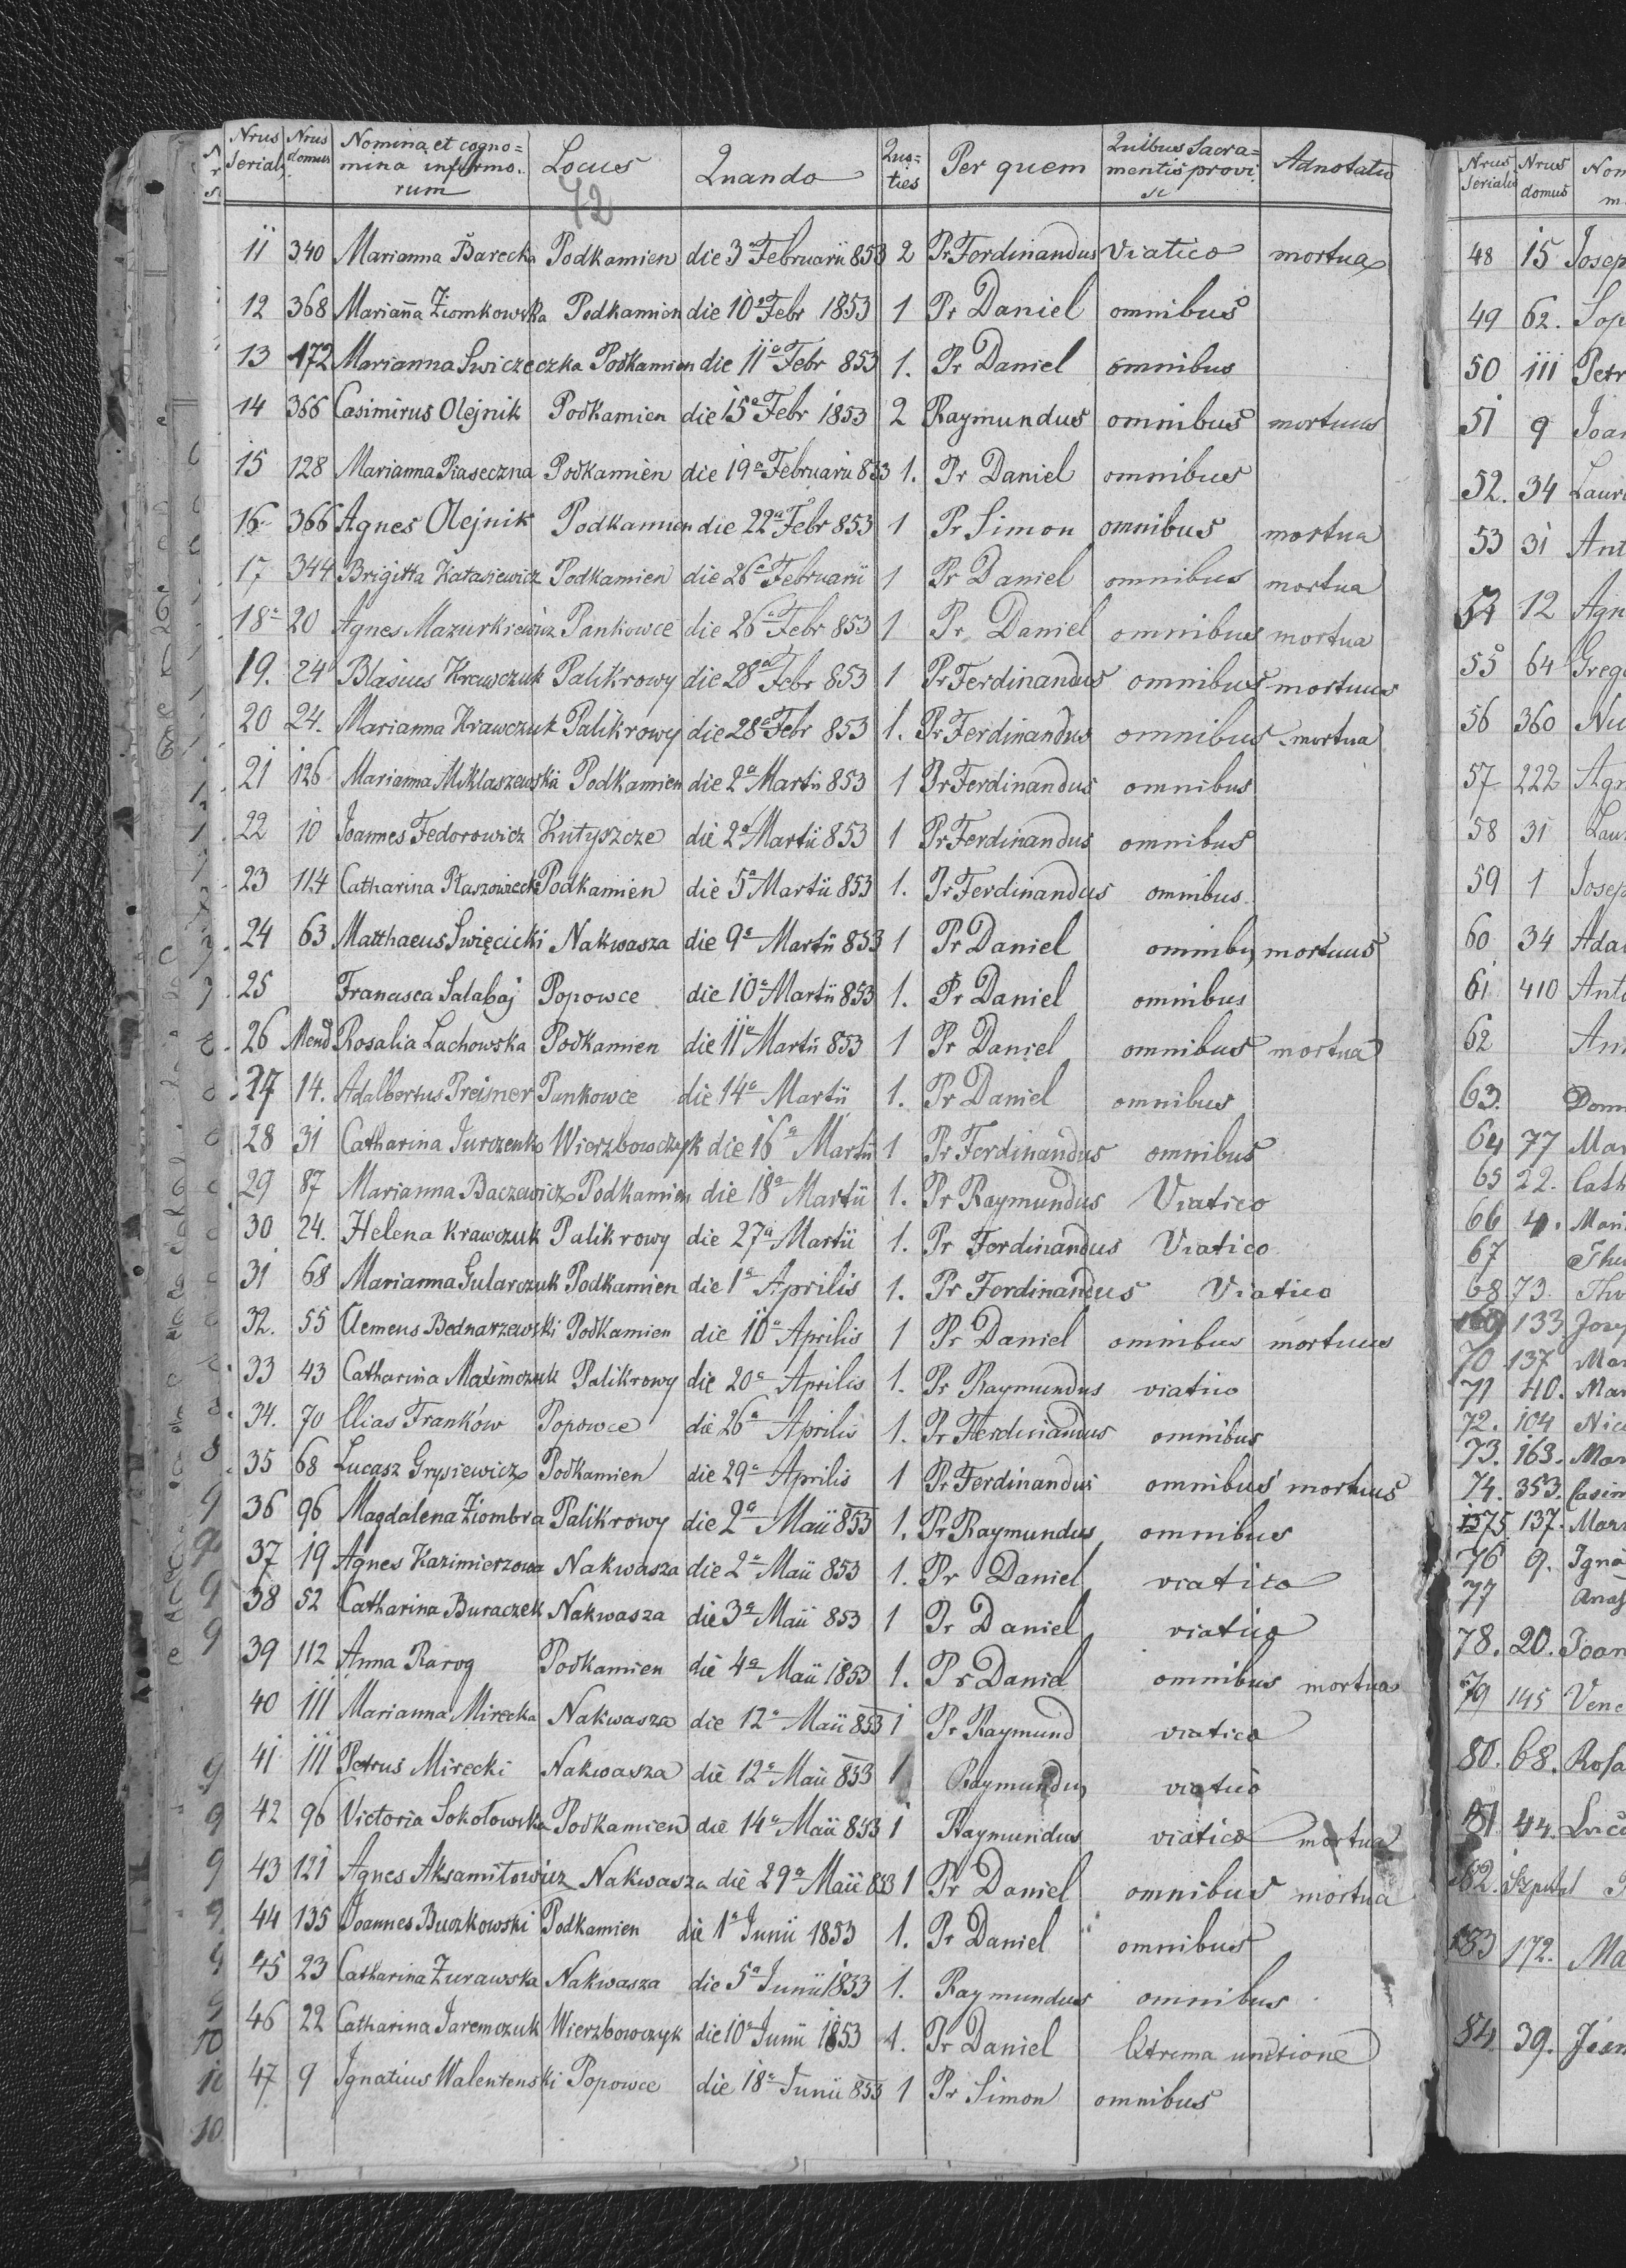 Nrus Serialis Nrus domus Nomina et cognomina infirmorum Locus Quando Quoties Per quem Quibus Sacramentis provisi Adnotatio
72
11 340 Marianna Barecka Podkamien die 3a Februarii 853 2 Pr Ferdinandus Viatico mortua
12 368 Marianna Ziomkowska Podkamien die 10a Febr 1853 1 Pr Daniel omnibus
13 172 Marianna Swiczeczka Podkamien die 11a Febr 853 1. Pr Daniel omnibus
14 366 Casimirus Olejnik Podkamien die 15a Febr 1853 2 Raymundus omnibus mortuus
15 128 Marianna Piaseczna Podkamien die 19a Februarii 853 1. Pr Daniel omnibus
16 366 Agnes Olejnik Podkamien die 22a Febr 853 1 Pr Simon omnibus mortua
17 344 Brigitta Katasiewicz Podkamien die 26a Februarii 1 Pr Daniel omnibus mortua
18 20 Agnes Mazurkiewicz Pankowce die 26a Febr 853 1 Pr Daniel omnibus mortua
19. 24 Blasius Krawczuk Palikrowy die 28a Febr 853 1 Pr Ferdinandus omnibus mortuus
20 24. Marianna Krawczuk Palikrowy die 28a Febr 853 1. Pr Ferdinandus omnibus mortua
21 126 Marianna Miklaszewska Podkamien die 2a Martii 853 1 Pr Ferdinandus omnibus
22 10 Joannes Fedorowicz Kutyszcze die 2a Martii 853 1 Pr Ferdinandus omnibus
23 114 Catharina Podkamien die 5a Martii 853 1. Pr Ferdinandus omnibus
24 63 Matthaeus Swięcicki Nakwasza die 9a Martii 853 1 Pr Daniel omnibus mortuus
25 Francisca Salabaj Popowce die 10a Martii 853 1. Pr Daniel omnibus
26 Mend Rosalia Lachowska Podkamien die 11a Martii 853 1 Pr Daniel omnibus mortua
27 14. Adalbertus Preisner Pankowce die 14a Martii 1. Pr Daniel omnibus
28 31 Catharina Jurczenko Wierzbowczyk die 16a Martii 1 Pr Ferdinandus omnibus
29 87 Marianna Baczewicz Podkamien die 18a Martii 1. Pr Raymundus Viatico
30 24. Helena Krawczuk Palikrowy die 27a Martii 1. Pr Ferdinandus Viatico
31 68 Marianna Gularczuk Podkamien die 1a Aprilis 1. Pr Ferdinandus Viatico
32. 55 Clemens Bednarzewski Podkamien die 10a Aprilis 1 Pr Daniel omnibus mortuus
33 43 Catharina Maximczuk Palikrowy die 20a Aprilis 1. Pr Raymundus viatico
34. 70 Elias Franków Popowce die 26a Aprilis 1. Pr Ferdinandus omnibus
35 68 Lucasz Grysiewicz Podkamien die 29a Aprilis 1 Pr Ferdinandus omnibus mortuus
36 96 Magdalena Ziombra Palikrowy die 2a Maii 853 1. Pr Raymundus omnibus
37 19 Agnes Kazimierzowa Nakwasza die 2a Maii 853 1. Pr Daniel viatico
38 52 Catharina Buraczek Nakwasza die 3a Maii 853 1 Pr Daniel viatico
39 112 Anna Rarog Podkamien die 4a Maii 1853 1. Pr Daniel omnibus mortua
40 111 Marianna Mirecka Nakwasza die 12a Maii 853 1 Pr Raymund viatico
41 111 Petrus Mirecki Nakwasza die 12a Maii 853 1 Raymundus viatico
42 96 Victoria Sokołowska Podkamien die 14a Maii 853 1 Raymundus viatico mortua
43 121 Agnes Aksamitowicz Nakwasza die 29a Maii 853 1 Pr Daniel omnibus mortua
44 135 Joannes Buczkowski Podkamien die 1a Junii 1853 1. Pr Daniel omnibus
45 23 Catharina Zurawska Nakwasza die 5a Junii 1853 1. Raymundus omnibus
46 22 Catharina Jaremczuk Wierzbowczyk die 10a Junii 1853 1. Pr Daniel Extrema unctione
47 9 Ignatius Walentenski Popowce die 18a Junii 853 1 Pr Simon omnibus
Nrus Serialis Nrus domus Nom
48 15 Josep
49 62. Sop
50 111 Petr
51 9 Joan
52. 34 Laur
53 31 Ant
54 12 Agn
55 64 Grego
56 360
57 222 Agn
58 31 Lau
59 1 Josep
60 34 Ada
61 410 Anto
62 An
63. Dom
64 77 Mar
65 22. Cath
66 4. Mari
67
68 73.
69 133 Josep
70 137 Mar
71 40. Mar
72. 104 Nico
73. 163. Mar
74. 353. Casim
75 137. Mari
76 9. Igna
77 Anas
78. 20. Joan
79 145 Vene
80. 68. Rosa
81 44. Luc
82. Szpital
83 172. Ma
84 39. Joan